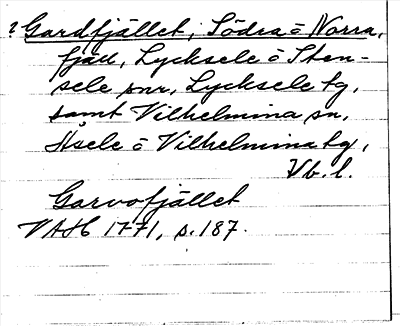 ? Gardfjället, Södra o Norra,
fjäll, Lycksele o Sten-
sele snr, Lycksele tg,
samt Vilhelmina sn,
Åsele o Vilhelmina tg,
Vb. l.
Garvofjället
VAH 1771, s. 187.